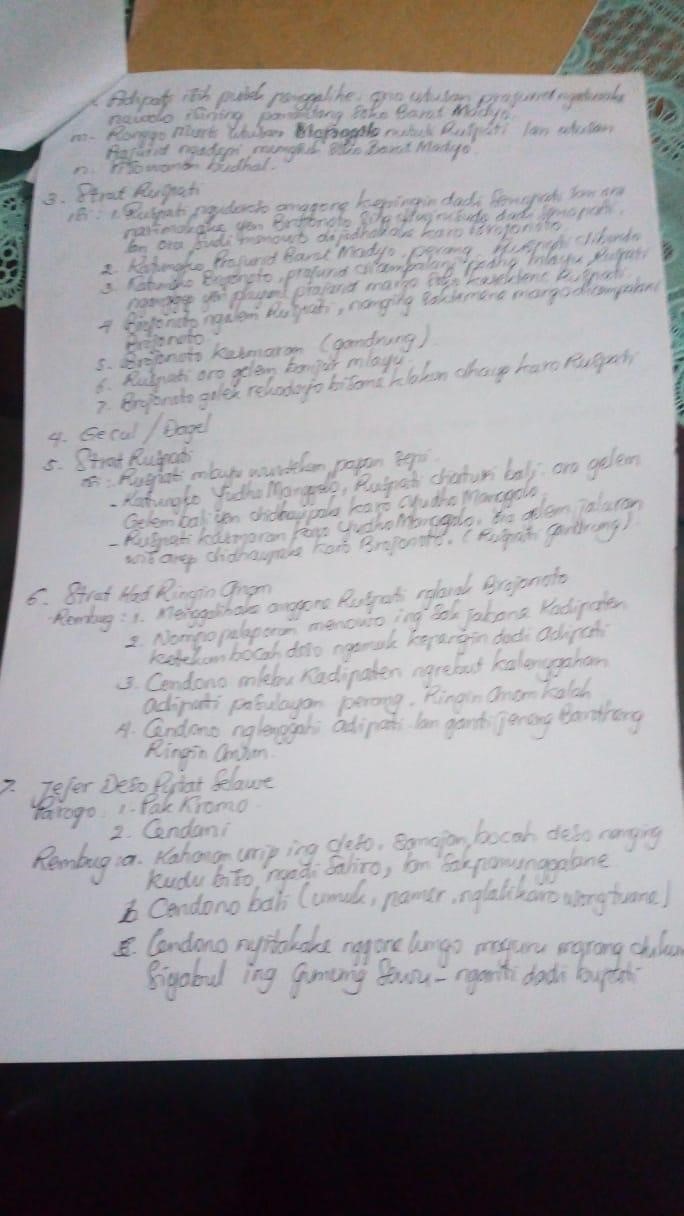 Adipati isih putek penggalihe. ono utusan prajurit
nduwo panantang Soko Barat Madyo.
m. Ronggo Murti utusan Manggolo Ruspati lan utusan
Prajurit ngadepi mungsuh Soko Barat Madyo.
n. budhal.
3. Strat Ruspati
isi : 1. Ruspati ngudoroso anggone kepingin dadi Senopati lan ora
yen Brojonoto sing dadi Senopati.
lan ora sudi menowo dijodhokake karo Brojonoto
2. Katungko Prajurid Barat Madyo, perang, Ruspati
3. Katungko Brojonoto, prajurid mlayu. Ruspati
nganggep yen playune prajurid margo Soko kasektene Ruspati.
4. Brojonoto ngalem Ruspati, nanging saktemene margo
Brojonoto.
5. Brojonoto kasmaran (gandrung)
6. Ruspati oro gelem banjur mlayu.
7. Brojonoto golek rekodoyo bisane klakon dhaup karo Ruspati
4. Gecul / Dagel
5. Strat Ruspati
isi : Ruspati mlayu papan sepi
- Katungko Yudho Manggolo, Ruspati diaturi bali. oro gelem
Gelem bali yen didhaupake karo Yudho Manggolo,
- Ruspati kasmaran karo Yudho Manggolo, ora gelem jalaran
wis arep didhaupake karo Brojonoto. (Ruspati gandrung)
6. Strat Had Ringin Anom
Rembug : 1. Menggalihake anggone Ruspati nglarak Brojonoto
2. Nompo palaporan menowo ing Sak jabane Kadipaten
ketekan bocah deso ngamuk kepangin dadi adipati
3. Cendono mlebu Kadipaten ngrebut kalenggahan
adipati pasulayan perang. Ringin Anom kalah
4. Cendono nglenggahi adipati lan ganti jeneng
Ringin Anom.
7. Jejer Deso Selawe
Parogo : 1. Pak Kromo
2. Cendani
Rembug : a. Kahanan urip ing deso, Sanajan bocah deso nanging
kudu biso ngadi Saliro, lan Sakpanunggalane
b Cendono bali (umuk, pamer, nglali karo wong tuane)
Cendono nyritakake nggone lungo maguru marang
ing Gunung Sewu - nganti dadi bupati